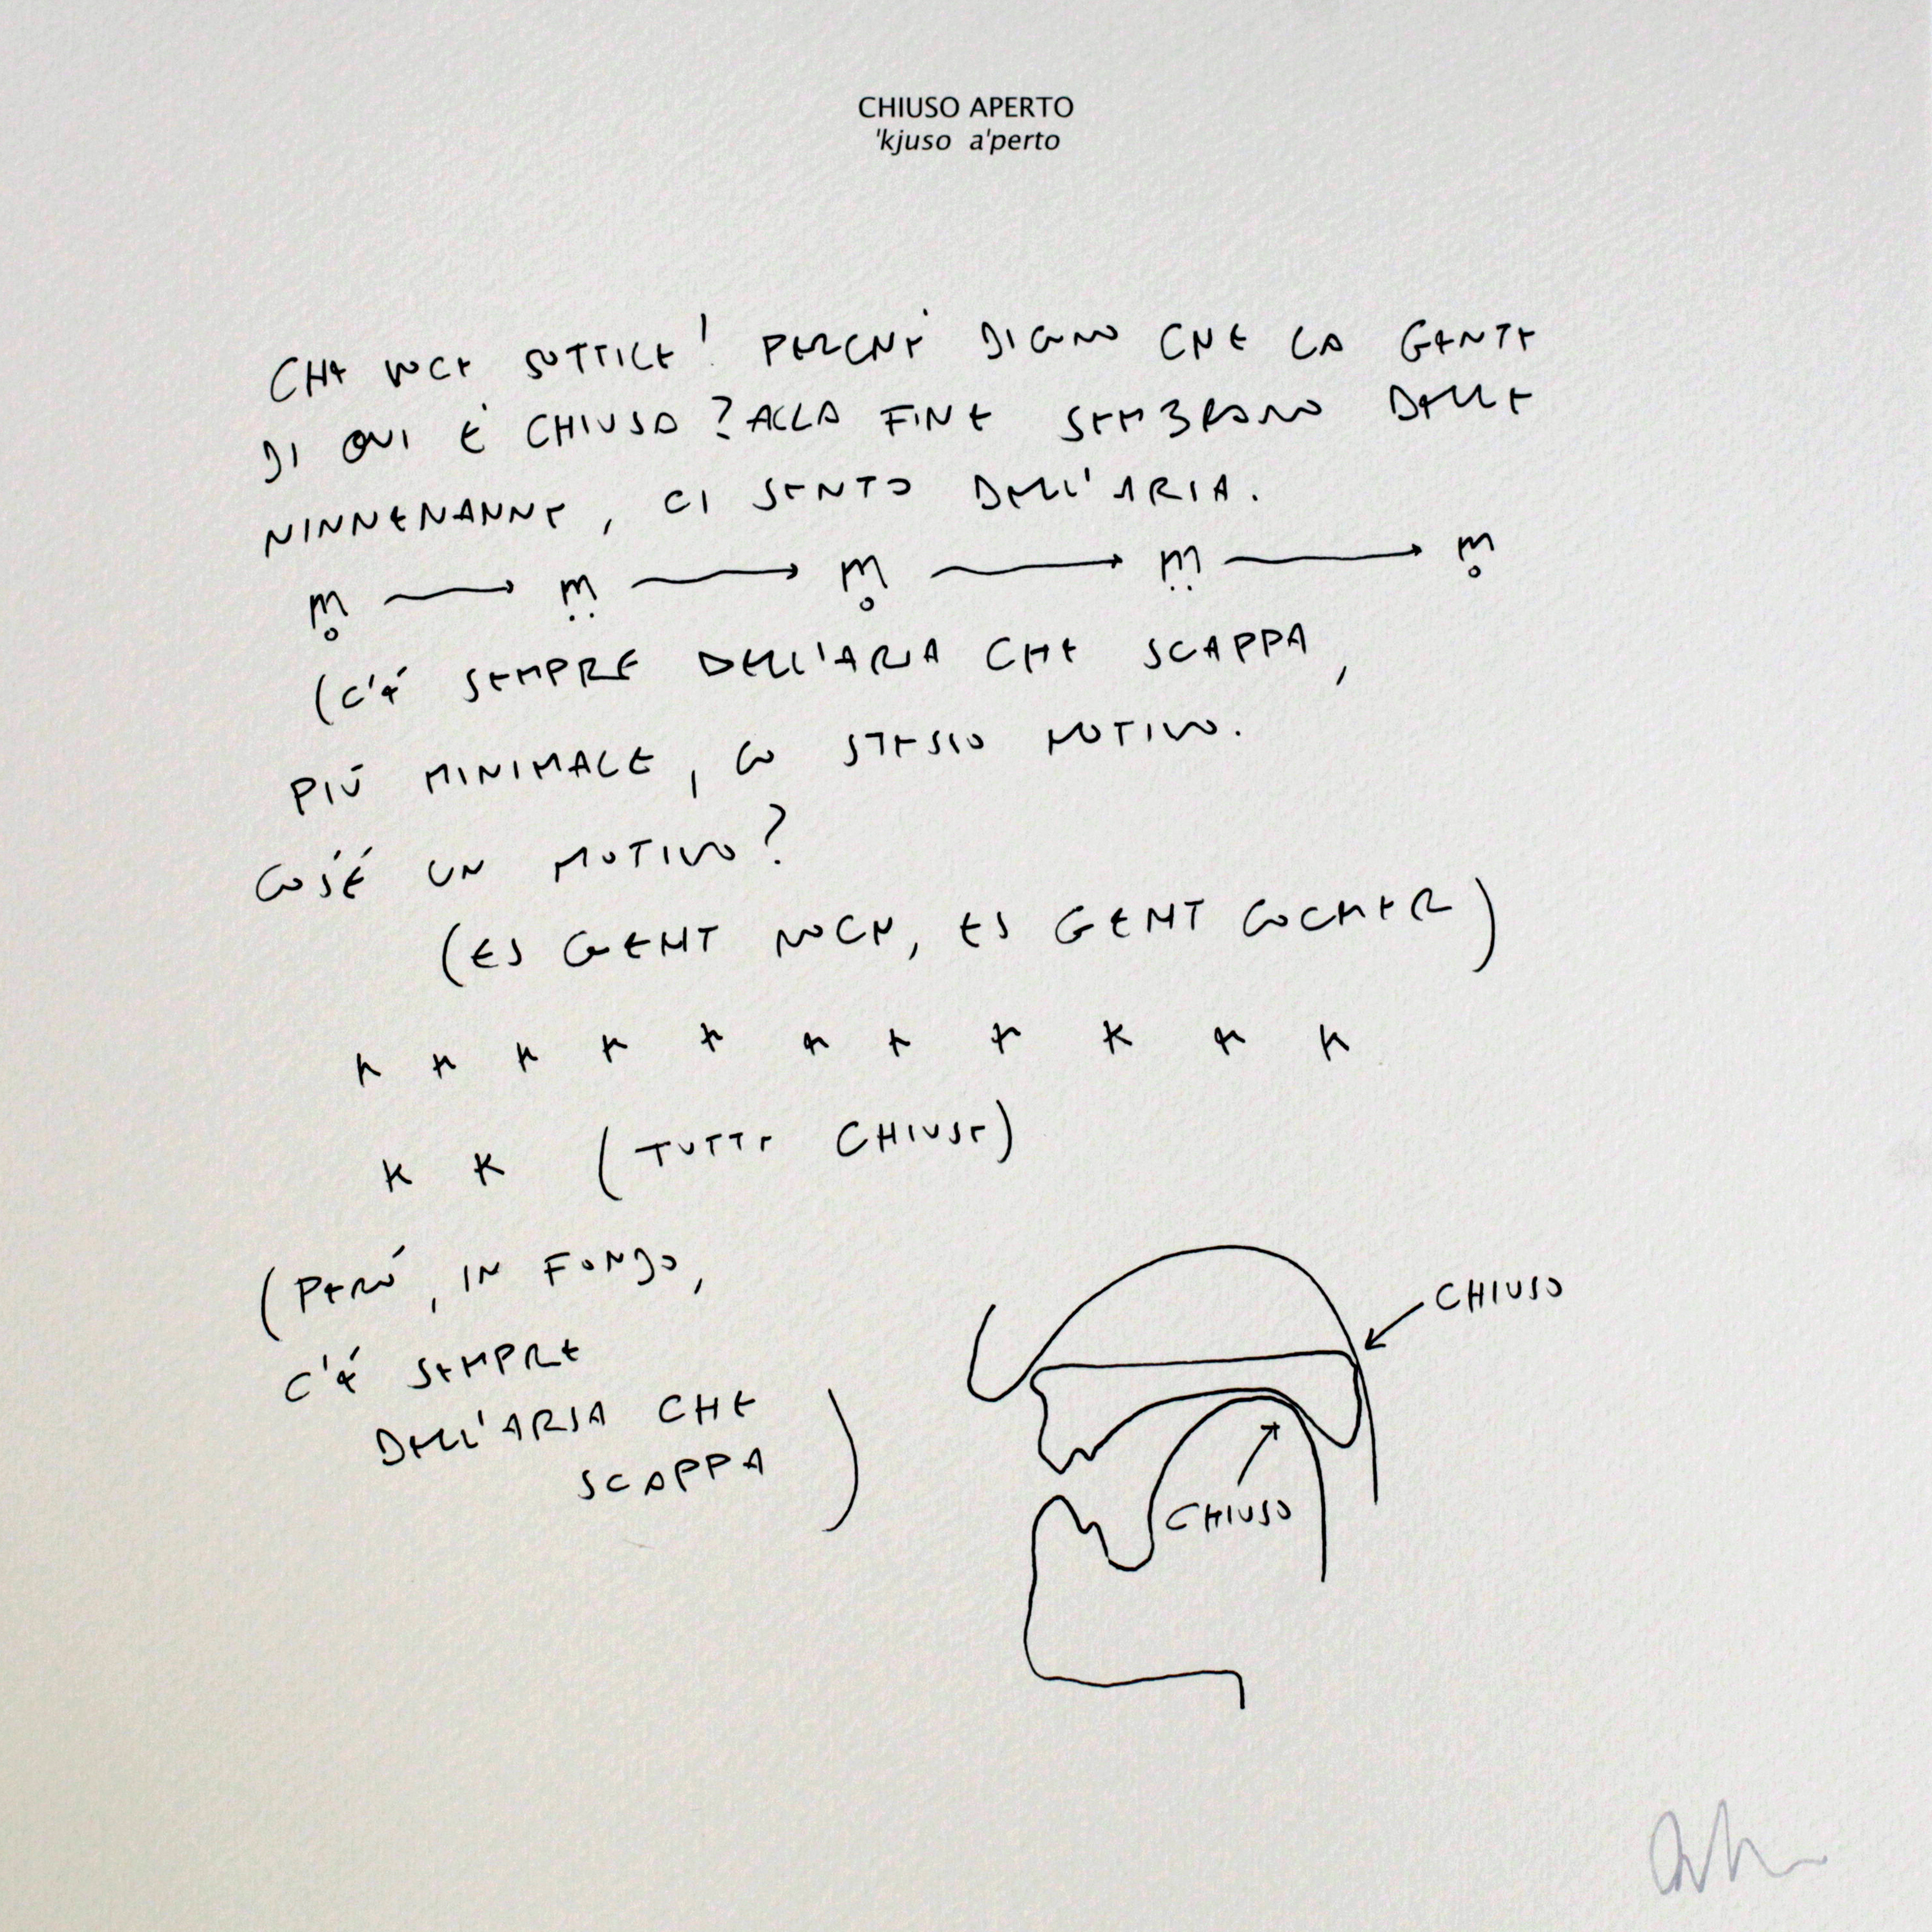 CHIUSO APERTO
'kjuso a'perto
CHE VOCE SOTTILE! PERCHÉ DICONO CHE LA GENTE
DI QUI È CHIUSA? ALLA FINE SEMBRANO DELLE
NINNENANNE, CI SENTO DELL'ARIA.
m̥ → m̤ → m̥ → m̤ → m̥
(C'È SEMPRE DELL'ARIA CHE SCAPPA,
PIÚ MINIMALE, LO STESSO MOTIVO.
COS'É UN MOTIVO?
(ES GEHT NOCH, ES GEHT LOCKER)
K K K K K K K K K K K
K K (TUTTE CHIUSE)
(PERÓ, IN FONDO,
C'È SEMPRE
DELL'ARIA CHE
SCAPPA)
CHIUSO
CHIUSO